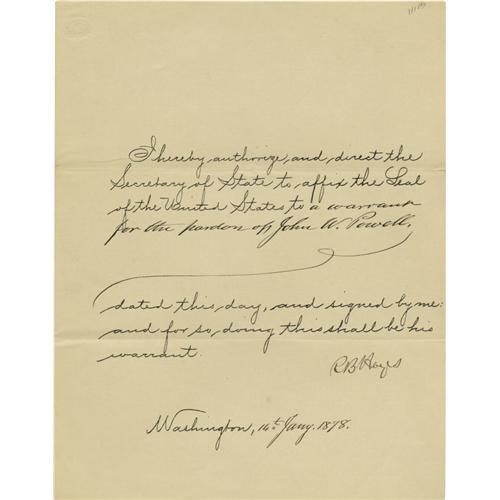 I hereby authorize, and, direct the
Secretary of State to, affix the Seal
of the United States to a warrant
for the pardon of John W. Powell,
dated this, day, and signed by me:
and for so, doing this shall be his
warrant.
R B Hayes
Washington, 14th Jany. 1878.